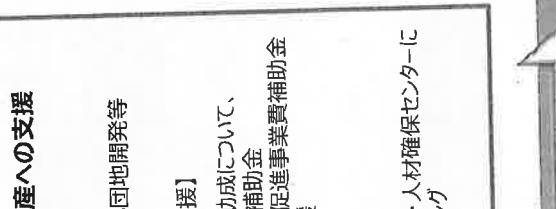 産への支援
団地開発等
援】
成について、
補助金
促進事業費補助金
・人材確保センターに
グ